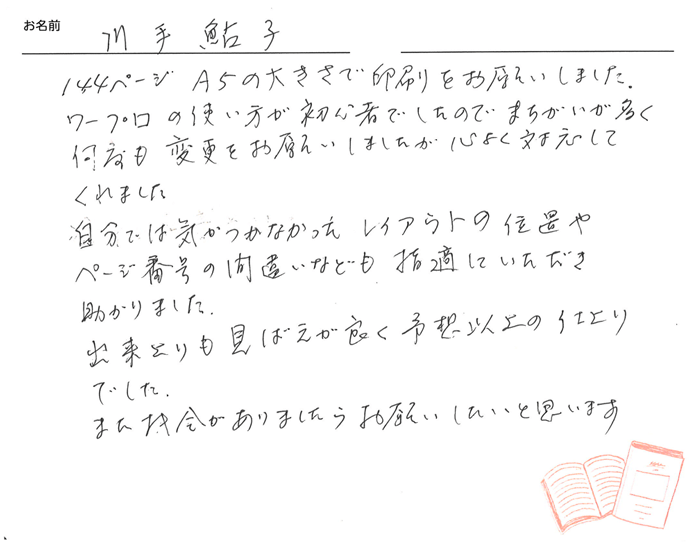 お名前 川手 鮎子
144ページ A5の大きさで印刷をお願いしました.
ワープロの使い方が初心者でしたのでまちがいが多く
何度も変更をお願いしましたが心よく対応して
くれました
自分では気がつかなかった レイアウトの位置や
ページ番号の間違いなども指適していただき
助かりました.
出来上りも見ばえが良く予想以上の仕上り
でした.
また機会がありましたらお願いしたいと思います